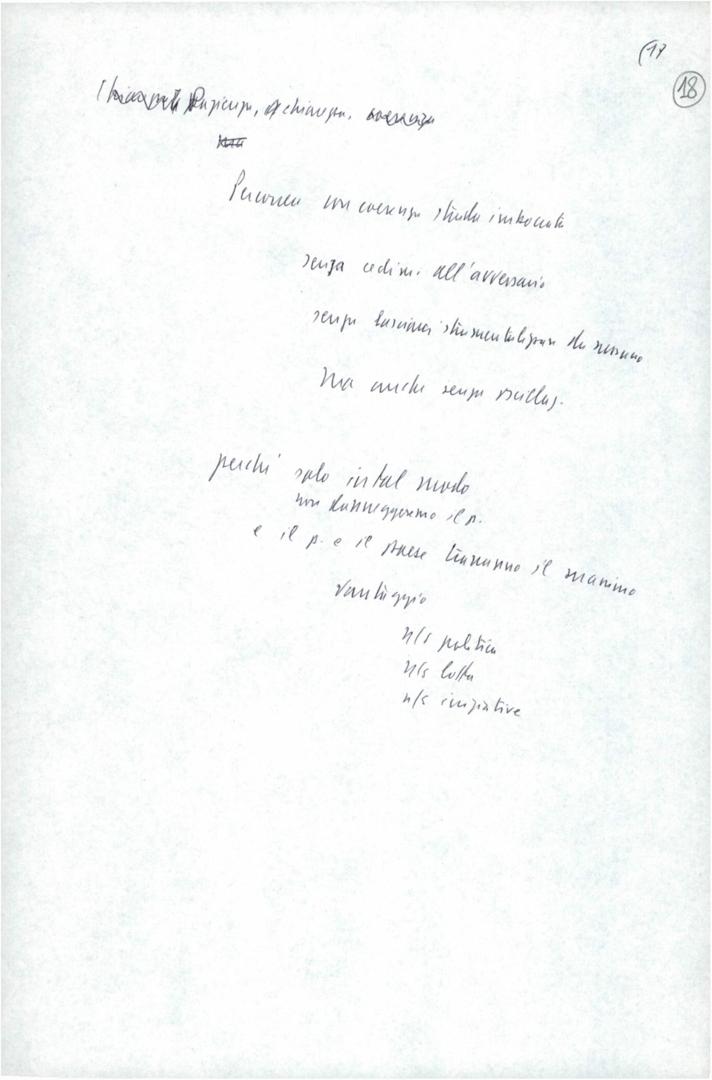 (17
18
chiarezza, coerenza
Percorrere con coerenza strada imboccata
senza cedim. all'avversario
senza lasciarci strumentalizzare da nessuno
Ma anche senza oscillaz.
perché solo in tal modo
non danneggeremo il p.
e il p. e il paese trarranno il massimo
vantaggio
n/s politica
n/s lotta
n/s iniziative